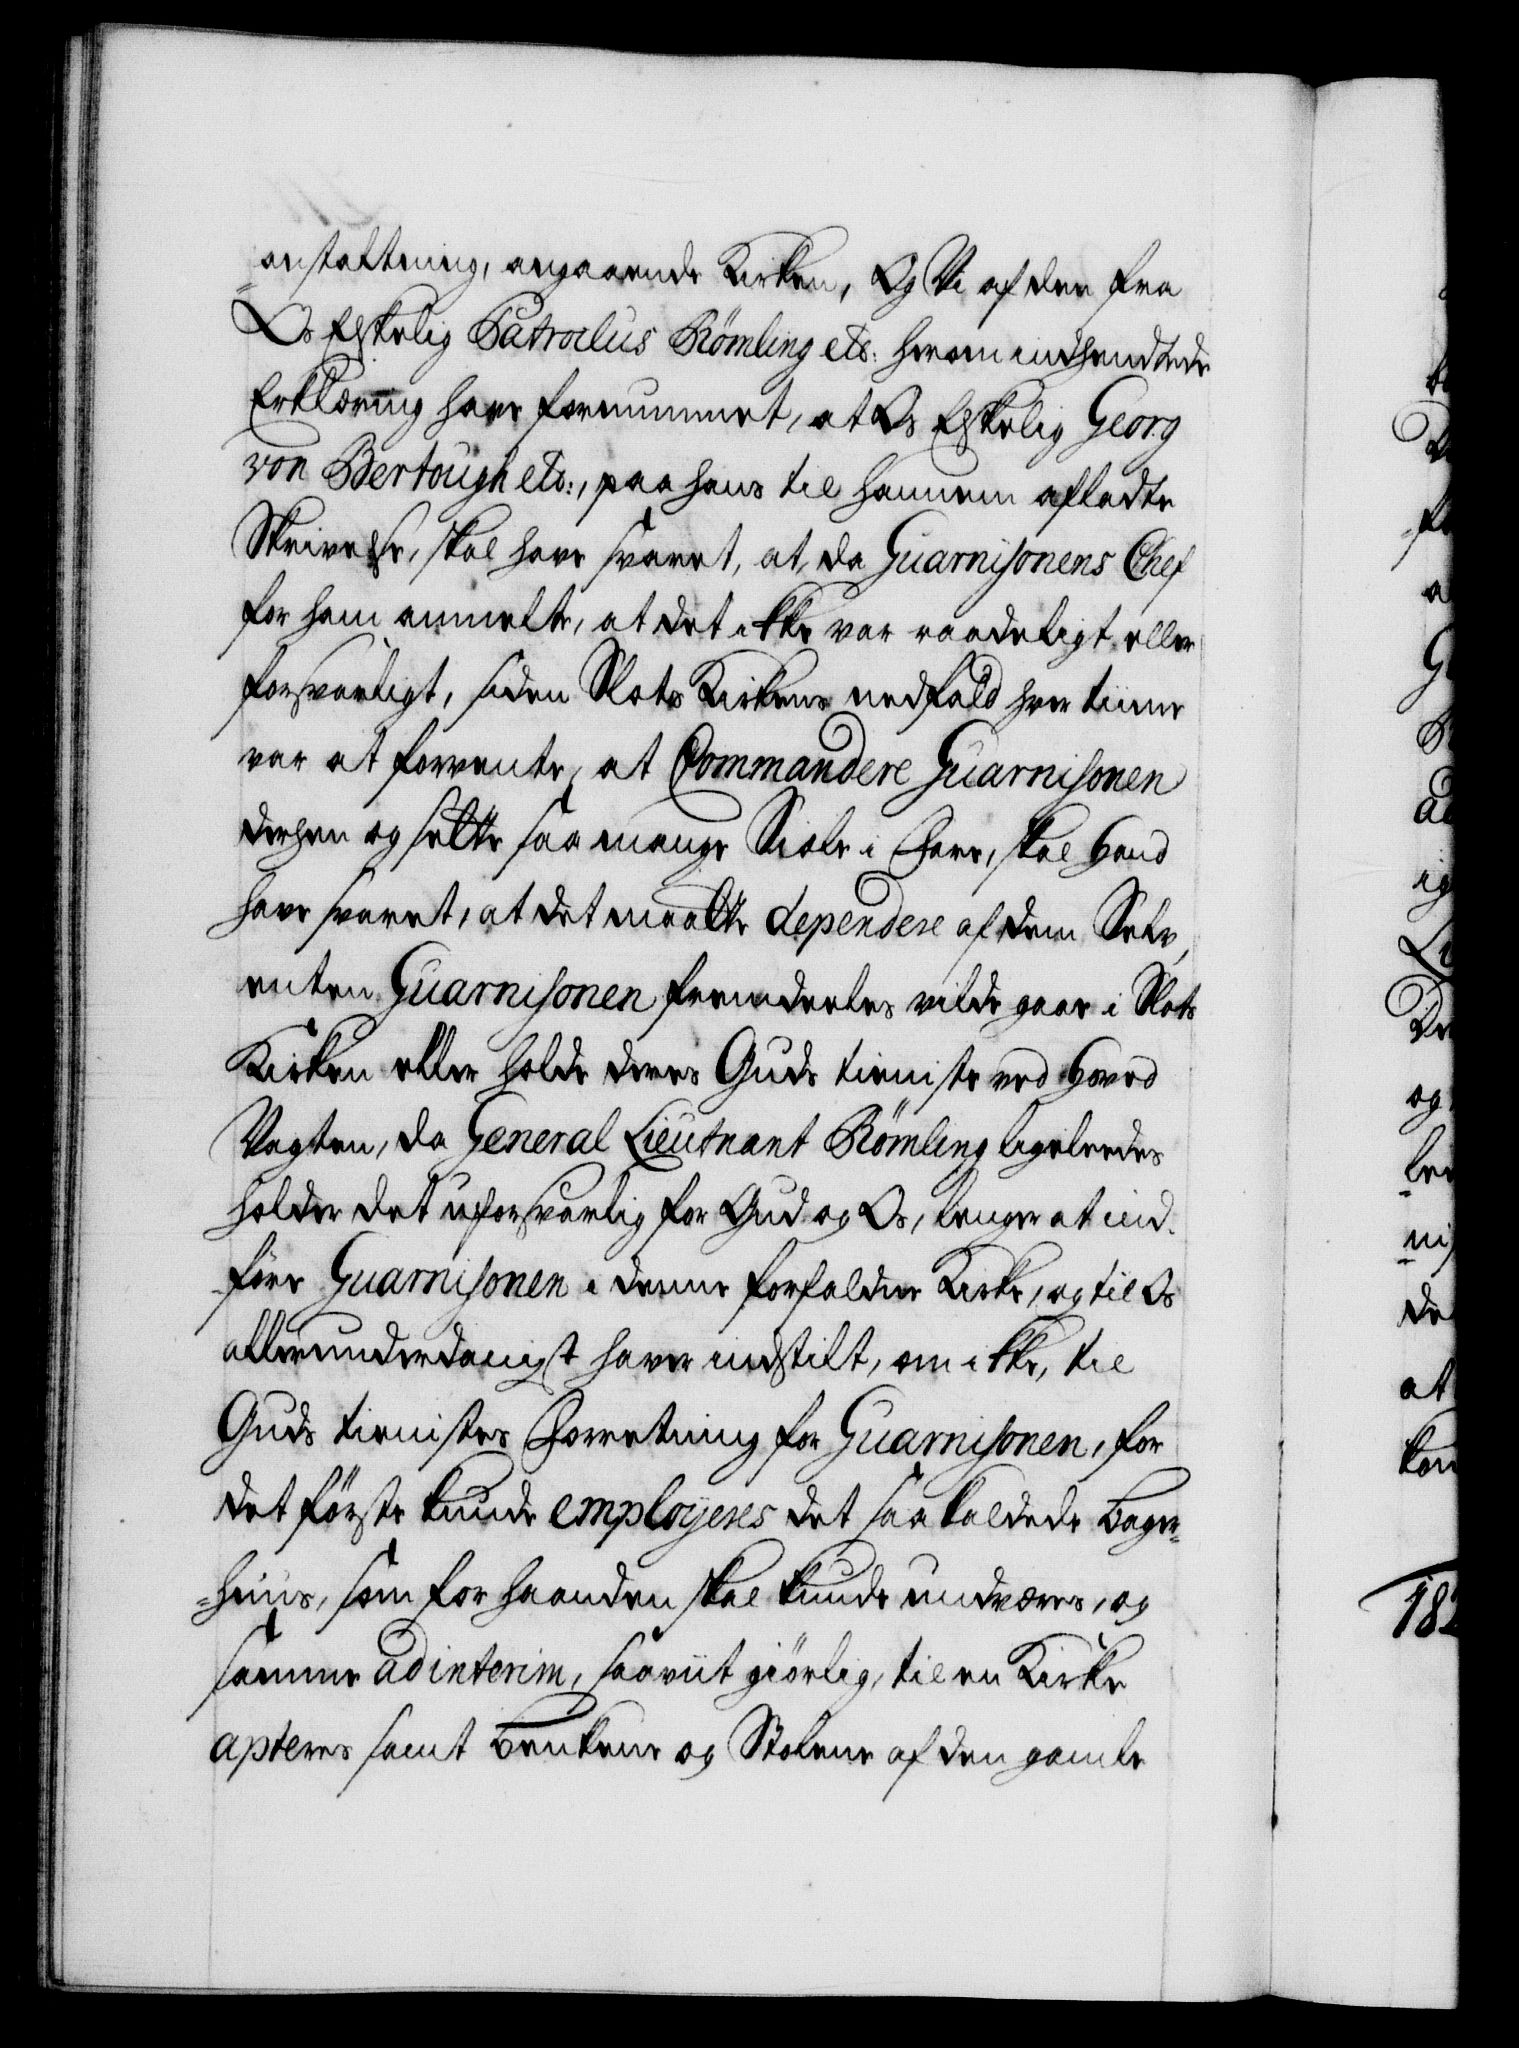 anstaltning, angaaende Kirken, Og Vi af den fra
Os Elskelig Patroclus Römling etc: herom indhendtede
Erklæring have fornummet, at Os Elskelig Georg
von Bertough etc:, paa hans til hannem afladte
Skrivelse, skal have svaret, at, da Guarnisonens Chef
for ham anmelte, at det ikke var raadeligt eller
forsvarligt, siden Slots Kirkens nedfald hver time
var at forvente, at Commandere Guarnisonen
derhen og sette saa mange Siæle i Fare, skal hand
have svaret, at det maatte dependere af dem Selv,
enten Guarnisonen fremdeeles vilde gaae i Slots
Kirken eller holde deres Guds tieniste ved Hoved
Vagten, da General Lieutnant Römling ligeleedes
holder det uforsvarlig for Gud og Os, lenger at ind-
-före Guarnisonen i denne forfaldne Kirke, og til Os
allerunderdanigst haver indstilt, om ikke, til
Guds tienistes Forretning for Guarnisonen, for
det förste kunde employeres det saa kaldede Bager-
-huus, som for haanden skal kunde undværes, og
samme ad interim, saaviit giörlig, til en Kirke
apteres samt Benkene og Stolene af den gamle
182